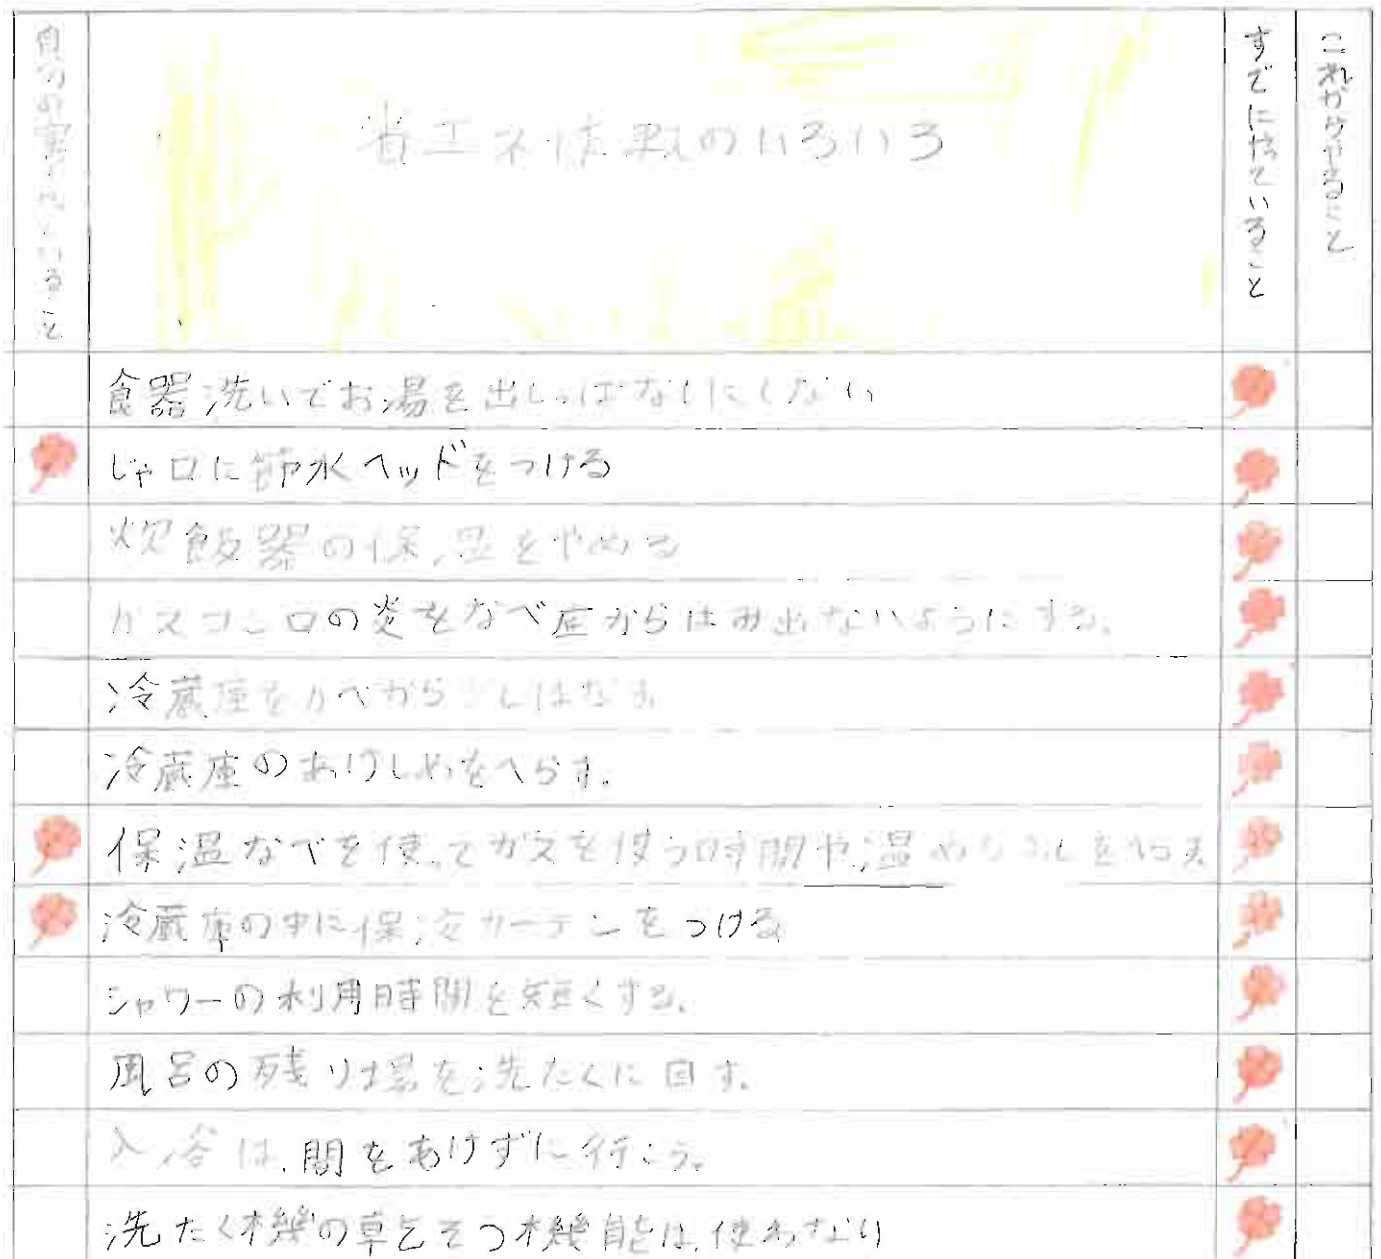 これからやること
すでにやっていること
省エネ作戦のいろいろ
食器洗いでお湯を出しっぱなしにしない
じゃ口に節水ヘッドをつける
炊飯器の保温をやめる
ガスコンロの炎をなべ底からはみ出ないようにする。
冷蔵庫をかべから はなす
冷蔵庫のあけしめをへらす。
保温なべを使ってガスを使う時間や温めなおしをへらす
冷蔵庫の中に保冷カーテンをつける
シャワーの利用時間を短くする。
風呂の残り湯を洗たくに回す。
入浴は、間をあけずに行こう。
洗たく機の草乞そう機能は、使わない